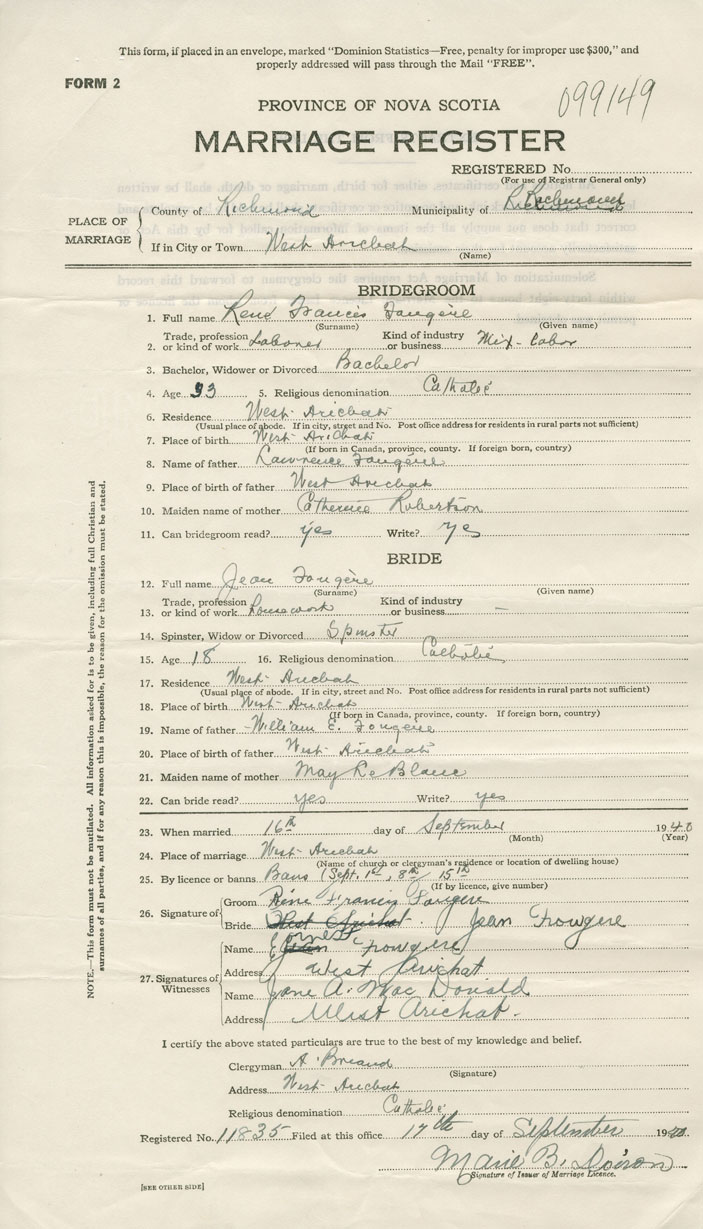 This form, if placed in an envelope, marked "Dominion Statistics—Free, penalty for improper use $300," and
properly addressed will pass through the Mail "FREE".
FORM 2
099149
PROVINCE OF NOVA SCOTIA
MARRIAGE REGISTER
REGISTERED No.
(For use of Registrar General only)
PLACE OF MARRIAGE
County of Richmond Municipality of Richmond
If in City or Town West Arichat
(Name)
BRIDEGROOM
1. Full name René Francis Fougère
(Surname) (Given name)
2. Trade, profession or kind of work Laborer Kind of industry or business Mix- Labor
3. Bachelor, Widower or Divorced Bachelor
4. Age 33 5. Religious denomination Catholic
6. Residence West Arichat
(Usual place of abode. If in city, street and No. Post office address for residents in rural parts not sufficient)
7. Place of birth West Arichat
(If born in Canada, province, county. If foreign born, country)
8. Name of father Lawrence Fougère
9. Place of birth of father West Arichat
10. Maiden name of mother Catherine Robertson
11. Can bridegroom read? yes Write? yes
BRIDE
12. Full name Jean Fougère
(Surname) (Given name)
13. Trade, profession or kind of work Housework Kind of industry or business —
14. Spinster, Widow or Divorced Spinster
15. Age 18 16. Religious denomination Catholic
17. Residence West Arichat
(Usual place of abode. If in city, street and No. Post office address for residents in rural parts not sufficient)
18. Place of birth West Arichat
(If born in Canada, province, county. If foreign born, country)
19. Name of father William E. Fougère
20. Place of birth of father West Arichat
21. Maiden name of mother May LeBlanc
22. Can bride read? yes Write? yes
23. When married 16th day of September 1940
(Month) (Year)
24. Place of marriage West Arichat
(Name of church or clergyman's residence or location of dwelling house)
25. By licence or banns Bans (Sept. 1st, 8th, 15th)
(If by licence, give number)
26. Signature of Groom Réne Francis Fougere
Bride West Arichat. Jean Frowgere
27. Signatures of Witnesses
Name Ernest Frowgere
Address West Arichat
Name Jane A. Mac Donald
Address West Arichat.
I certify the above stated particulars are true to the best of my knowledge and belief.
Clergyman A. Briand
(Signature)
Address West Arichat
Religious denomination Catholic
Registered No. 11835 Filed at this office 17th day of September 1940
Marie B. Doiron
Signature of Issuer of Marriage Licence.
[SEE OTHER SIDE]
NOTE.—This form must not be mutilated. All information asked for is to be given, including full Christian and
surnames of all parties, and if for any reason this is impossible, the reason for the omission must be stated.